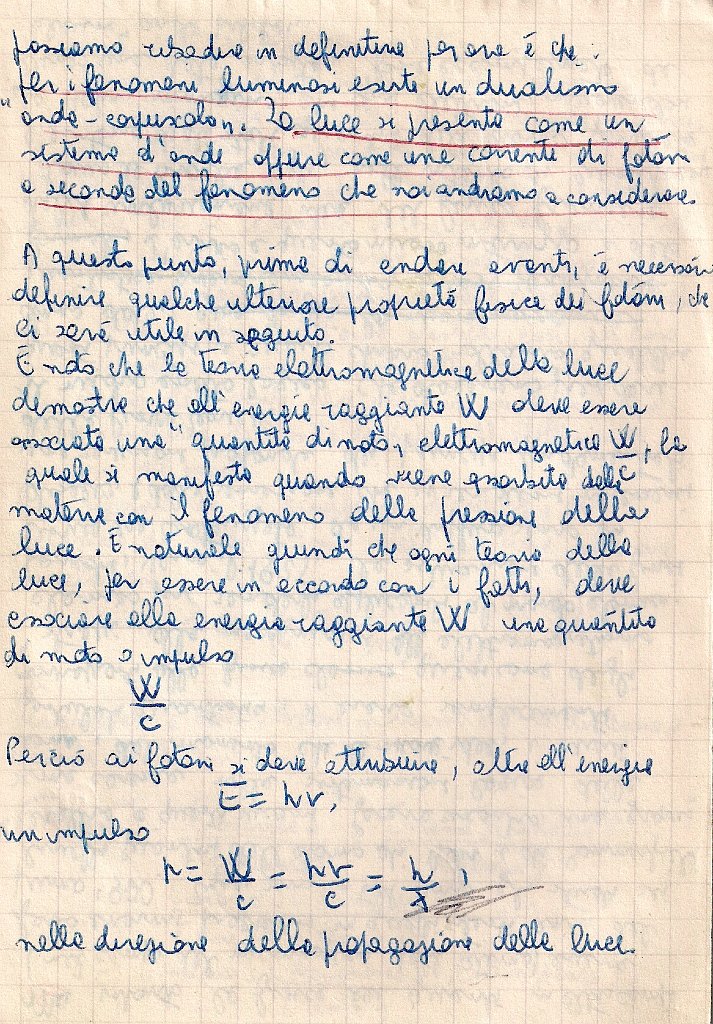 possiamo ribadire in definitiva per ora è che:
per i fenomeni luminosi esiste un dualismo
"onda-corpuscolo". La luce si presenta come un
sistema d'onde oppure come una corrente di fotoni
a seconda del fenomeno che noi andiamo a considerare.
A questo punto, prima di andare avanti, è necessario
definire qualche ulteriore proprietà fisica dei fotoni, che
ci sarà utile in seguito.
È noto che la teoria elettromagnetica della luce
dimostra che all'energia raggiante W deve essere
associata una "quantità di moto" elettromagnetica W/c, la
quale si manifesta quando viene assorbita dalla
materia con il fenomeno della pressione della
luce. È naturale quindi che ogni teoria della
luce, per essere in accordo con i fatti, deve
associare alla energia raggiante W una quantità
di moto o impulso
W/c
Perciò ai fotoni si deve attribuire, oltre all'energia
E = hν,
un impulso
p = W/c = hν/c = h/λ,
nella direzione della propagazione della luce.